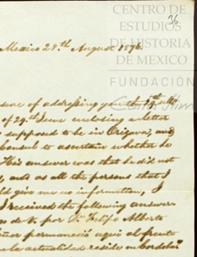 CENTRO DE
ESTUDIOS
DE HISTORIA
DE MEXICO
FUNDACIÓN
Mexico 28th August 1876
of addressing you the
of 29th June enclosing a letter
supposed to be in Orizava, and
Consul to ascertain whether he
His answer was that he did not
and as all the persons that I
give me no information, I
I received the following answer
por Dn Felipe Alberto
permaneció aqui al frente
la actualidad reside en